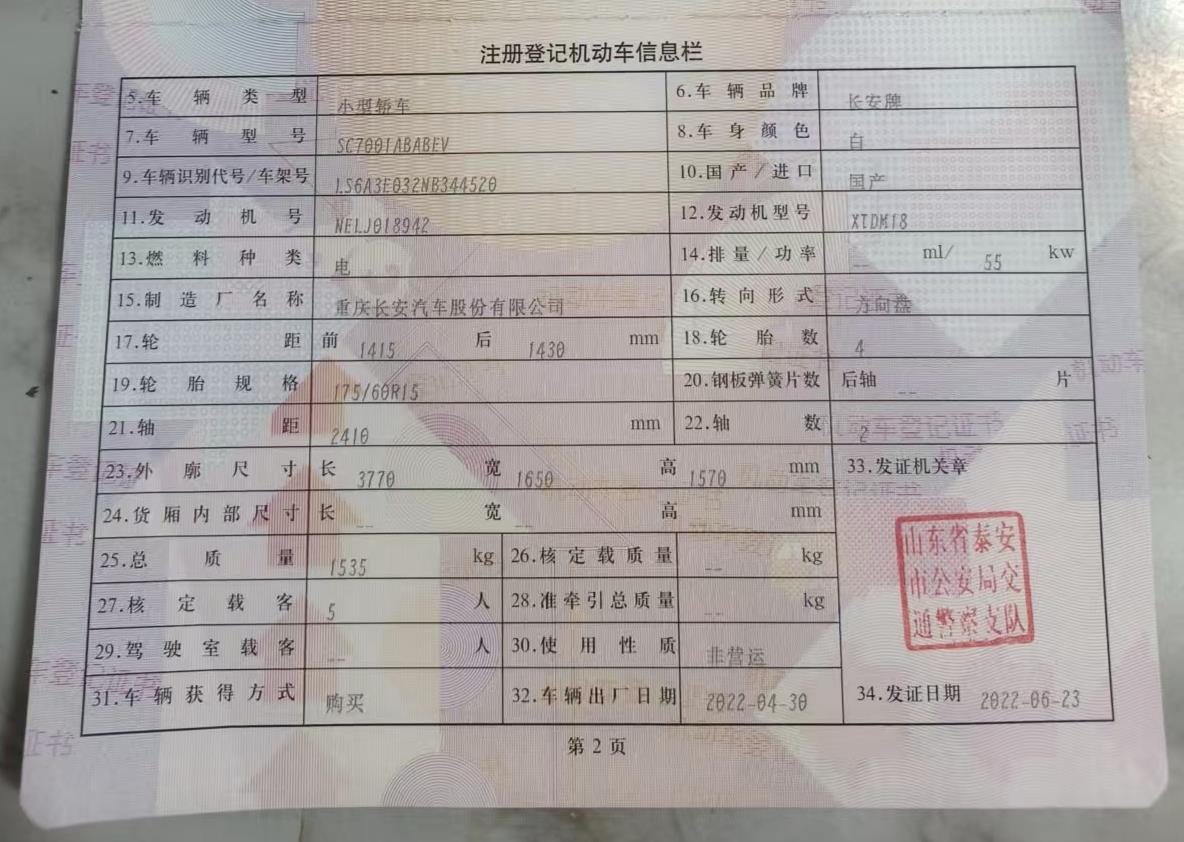 注册登记机动车信息栏
5.车辆类型 小型轿车 6.车辆品牌 长安牌
7.车辆型号 SC7001ABABEV 8.车身颜色 白
9.车辆识别代号/车架号 LS6A3E032NB344520 10.国产/进口 国产
11.发动机号 NELJ018942 12.发动机型号 XTDM18
13.燃料种类 电 14.排量/功率 -- ml/ 55 kw
15.制造厂名称 重庆长安汽车股份有限公司 16.转向形式 方向盘
17.轮距 前 1415 后 1430 mm 18.轮胎数 4
19.轮胎规格 175/60R15 20.钢板弹簧片数 后轴 -- 片
21.轴距 2410 mm 22.轴数 2
23.外廓尺寸 长 3770 宽 1650 高 1570 mm 33.发证机关章
24.货厢内部尺寸 长 -- 宽 -- 高 mm
25.总质量 1535 kg 26.核定载质量 -- kg
27.核定载客 5 人 28.准牵引总质量 -- kg
29.驾驶室载客 -- 人 30.使用性质 非营运
31.车辆获得方式 购买 32.车辆出厂日期 2022-04-30 34.发证日期 2022-06-23
山东省泰安
市公安局交
通警察支队
第2页